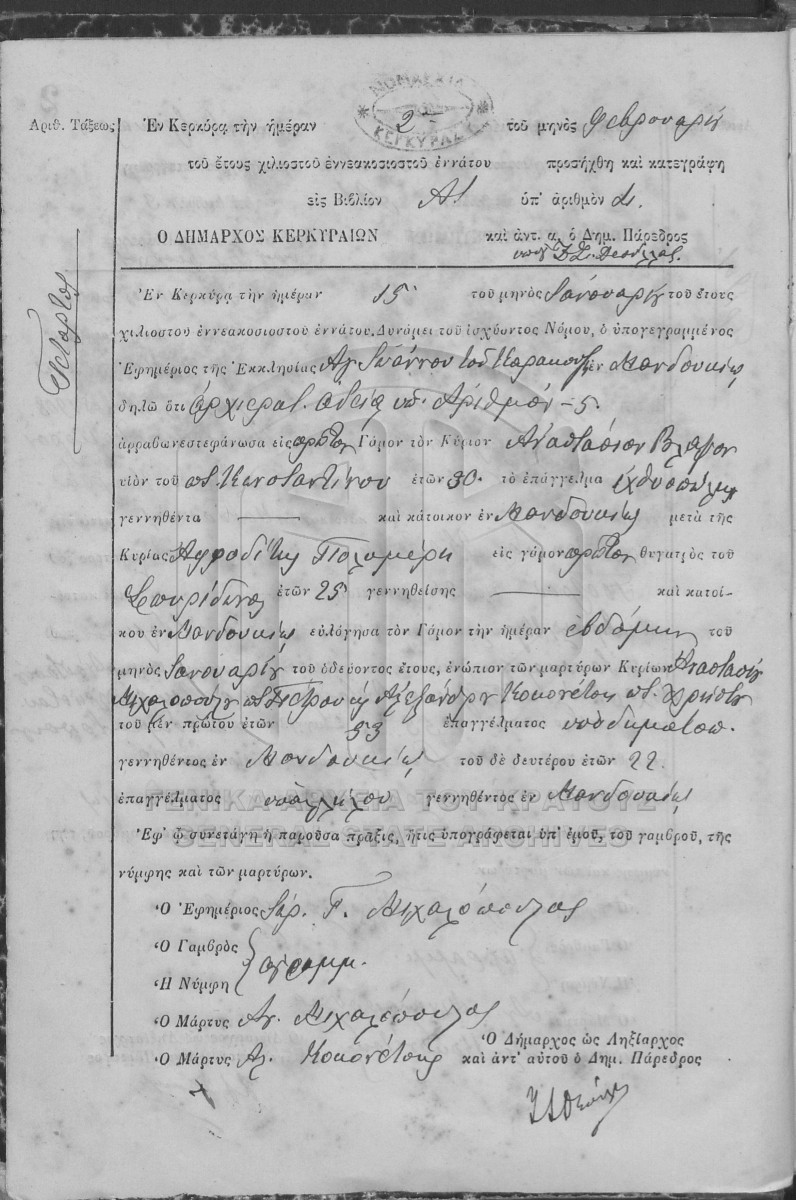 ΝΟΜΑΡΧΙΑ ΚΕΡΚΥΡΑΣ
Ἀριθ. Τάξεως
Τέταρτος
Ἐν Κερκύρᾳ τὴν ἡμέραν 2αν τοῦ μηνὸς Φεβρουαρίου
τοῦ ἔτους χιλιοστοῦ ἐννεακοσιοστοῦ ἐννάτου προσήχθη καὶ κατεγράφη
εἰς Βιβλίον Α! ὑπ' ἀριθμὸν 4.
Ὁ ΔΗΜΑΡΧΟΣ ΚΕΡΚΥΡΑΙΩΝ καὶ ἀντ. α. ὁ Δημ. Πάρεδρος
Ἐν Κερκύρᾳ τὴν ἡμέραν 15 τοῦ μηνὸς Ἰανουαρίου τοῦ ἔτους
χιλιοστοῦ ἐννεακοσιοστοῦ ἐννάτου. Δυνάμει τοῦ ἰσχύοντος Νόμου, ὁ ὑπογεγραμμένος
Ἐφημέριος τῆς Ἐκκλησίας Ἁγ. Ἰωάννου τοῦ ἐν Μανδουκίῳ
δηλῶ ὅτι ἀρχιερατ. ἀδείᾳ ὑπ. Ἀριθμὸν -5.
ἀρραβωνεστεφάνωσα εἰς πρῶτον Γάμον τὸν Κύριον Ἀναστάσιον
υἱὸν τοῦ ποτ. Κωνσταντίνου ἐτῶν 30. τὸ ἐπάγγελμα ἰχθυοπώλην
γεννηθέντα — καὶ κάτοικον ἐν Μανδουκίῳ μετὰ τῆς
Κυρίας Ἀφροδίτης Πολυμέρη εἰς γάμον πρῶτον θυγατρὸς τοῦ
Σπυρίδωνος ἐτῶν 25 γεννηθείσης — καὶ κατοί-
κου ἐν Μανδουκίῳ εὐλόγησα τὸν Γάμον τὴν ἡμέραν ἑβδόμην τοῦ
μηνὸς Ἰανουαρίου τοῦ ὁδεύοντος ἔτους, ἐνώπιον τῶν μαρτύρων Κυρίων Ἀναστασίου
Μιχαλοπούλου ποτ. Πέτρου καὶ Ἀλεξάνδρου Κοκονέτση ποτ. Χρήστου
τοῦ μὲν πρώτου ἐτῶν 33 ἐπαγγέλματος ὑποδηματοπ.
γεννηθέντος ἐν Μανδουκίῳ τοῦ δὲ δευτέρου ἐτῶν 22
ἐπαγγέλματος ὑπαλλήλου γεννηθέντος ἐν Μανδουκίῳ
ΓΕΝΙΚΑ ΑΡΧΕΙΑ ΤΟΥ ΚΡΑΤΟΥΣ
Ἐφ' ᾧ συνετάγη ἡ παροῦσα πρᾶξις, ἥτις ὑπογράφεται ὑπ' ἐμοῦ, τοῦ γαμβροῦ, τῆς
GENERAL STATE ARCHIVES
νύμφης καὶ τῶν μαρτύρων.
Ὁ Ἐφημέριος Ἱερ. Γ. Μιχαλόπουλος
Ὁ Γαμβρὸς
ἀγραμμ.
Ἡ Νύμφη
Ὁ Μάρτυς Ἀν. Μιχαλόπουλος
Ὁ Δήμαρχος ὡς Ληξίαρχος
Ὁ Μάρτυς Ἀλ. Κοκονέτσης καὶ ἀντ' αὐτοῦ ὁ Δημ. Πάρεδρος